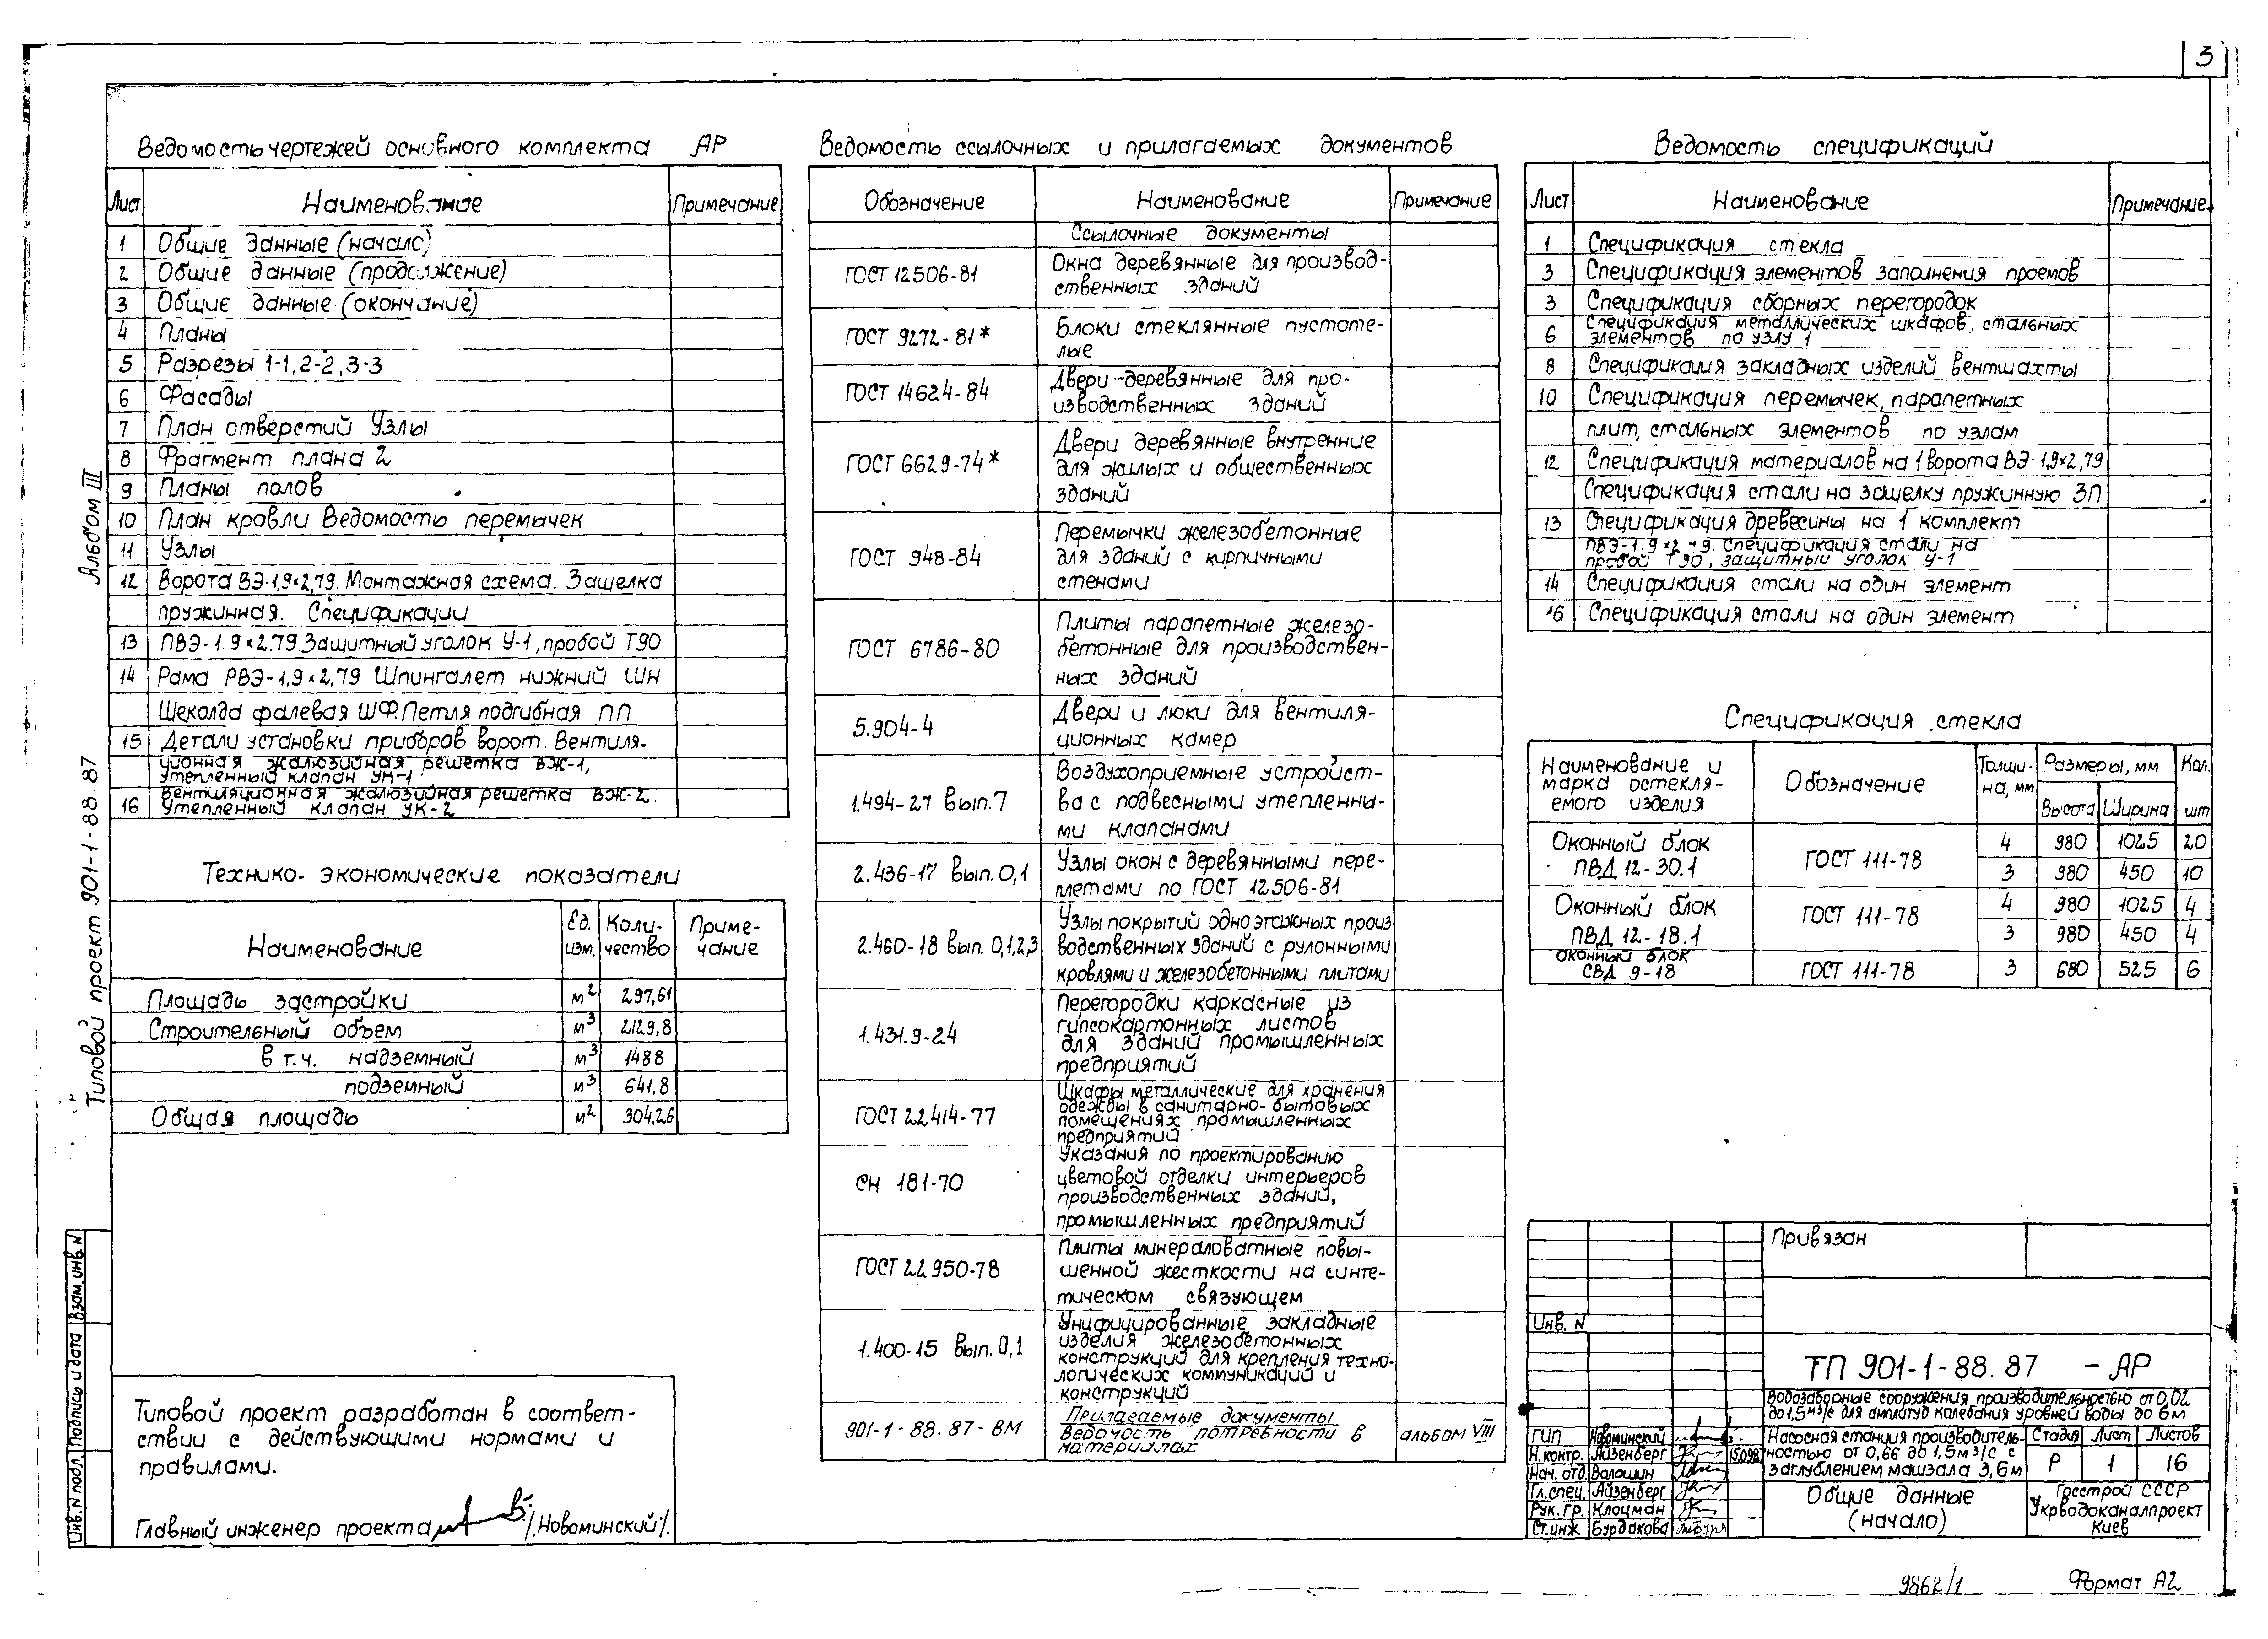 3
Альбом III
Типовой проект 901-1-88.87
Ведомость чертежей основного комплекта АР
Лист Наименование Примечание
1 Общие данные (начало)
2 Общие данные (продолжение)
3 Общие данные (окончание)
4 Планы
5 Разрезы 1-1, 2-2, 3-3
6 Фасады
7 План отверстий Узлы
8 Фрагмент плана 2
9 Планы полов
10 План кровли Ведомость перемычек
11 Узлы
12 Ворота ВЭ-1,9×2,79. Монтажная схема. Защелка
пружинная. Спецификации
13 ПВЭ-1.9×2.79. Защитный уголок У-1, пробой Т90
14 Рама РВЭ-1,9×2,79 Шпингалет нижний ШН
Шеколда фалевая ШФ. Петля подгибная ПП
15 Детали установки приборов ворот. Вентиля-
ционная жалюзийная решетка ВЖ-1,
утепленный клапан УК-1
16 Вентиляционная жалюзийная решетка ВЖ-2.
Утепленный клапан УК-2
Технико-экономические показатели
Наименование Ед. изм. Коли-чество Приме-чание
Площадь застройки м² 297,61
Строительный объем м³ 2129,8
в т.ч. надземный м³ 1488
подземный м³ 641,8
Общая площадь м² 304,26
Типовой проект разработан в соответ-
ствии с действующими нормами и
правилами.
Главный инженер проекта /Новоминский/.
Ведомость ссылочных и прилагаемых документов
Обозначение Наименование Примечание
Ссылочные документы
ГОСТ 12506-81 Окна деревянные для производ-
ственных зданий
ГОСТ 9272-81* Блоки стеклянные пустоте-
лые
ГОСТ 14624-84 Двери деревянные для про-
изводственных зданий
ГОСТ 6629-74* Двери деревянные внутренние
для жилых и общественных
зданий
ГОСТ 948-84 Перемычки железобетонные
для зданий с кирпичными
стенами
ГОСТ 6786-80 Плиты парапетные железо-
бетонные для производствен-
ных зданий
5.904-4 Двери и люки для вентиля-
ционных камер
1.494-27 Вып.7 Воздухоприемные устройст-
ва с подвесными утепленны-
ми клапанами
2.436-17 Вып.0,1 Узлы окон с деревянными пере-
плетами по ГОСТ 12506-81
2.460-18 Вып. 0,1,2,3 Узлы покрытий одноэтажных произ
водственных зданий с рулонными
кровлями и железобетонными плитами
1.431.9-24 Перегородки каркасные из
гипсокартонных листов
для зданий промышленных
предприятий
ГОСТ 22414-77 Шкафы металлические для хранения
одежды в санитарно-бытовых
помещениях промышленных
предприятий
СН 181-70 Указания по проектированию
цветовой отделки интерьеров
производственных зданий,
промышленных предприятий
ГОСТ 22950-78 Плиты минераловатные повы-
шенной жесткости на синте-
тическом связующем
1.400-15 Вып.0,1 Унифицированные закладные
изделия железобетонных
конструкций для крепления техно-
логических коммуникаций и
конструкций
Прилагаемые документы
901-1-88.87-ВМ Ведомость потребности в альбом VIII
материалах
Ведомость спецификаций
Лист Наименование Примечание
1 Спецификация стекла
3 Спецификация элементов заполнения проемов
3 Спецификация сборных перегородок
6 Спецификация металлических шкафов, стальных
элементов по узлу 1
8 Спецификация закладных изделий вентшахты
10 Спецификация перемычек, парапетных
плит, стальных элементов по узлам
12 Спецификация материалов на 1 ворота ВЭ-1,9×2,79
Спецификация стали на защелку пружинную ЗП
13 Спецификация древесины на 1 комплект
ПВЭ-1.9×2.79. Спецификация стали на
пробой Т90, защитный уголок У-1
14 Спецификация стали на один элемент
16 Спецификация стали на один элемент
Спецификация стекла
Наименование и марка остекля-емого изделия Обозначение Толщи-на, мм Размеры, мм Кол. шт
Высота Ширина
Оконный блок ПВД 12-30.1 ГОСТ 111-78 4 980 1025 20
3 980 450 10
Оконный блок ПВД 12-18.1 ГОСТ 111-78 4 980 1025 4
3 980 450 4
Оконный блок СВД 9-18 ГОСТ 111-78 3 680 525 6
Привязан
Инв. N
ТП 901-1-88.87 -АР
Водозаборные сооружения производительностью от 0,02
до 1,5 м³/с для амплитуд колебания уровней воды до 6м
ГИП Новоминский
Н.контр. Айзенберг
Нач. отд. Волошин
Гл.спец. Айзенберг
Рук. гр. Клоцман
Ст.инж Бурдакова
Насосная станция производитель-
ностью от 0,66 до 1,5 м3/с с
заглублением машзала 3,6м
Стадия Лист Листов
Р 1 16
Общие данные
(начало)
Госстрой СССР
Укрводоканалпроект
Киев
Инв. N подл. Подпись и дата Взам. инв. N
9862/1
Формат А2